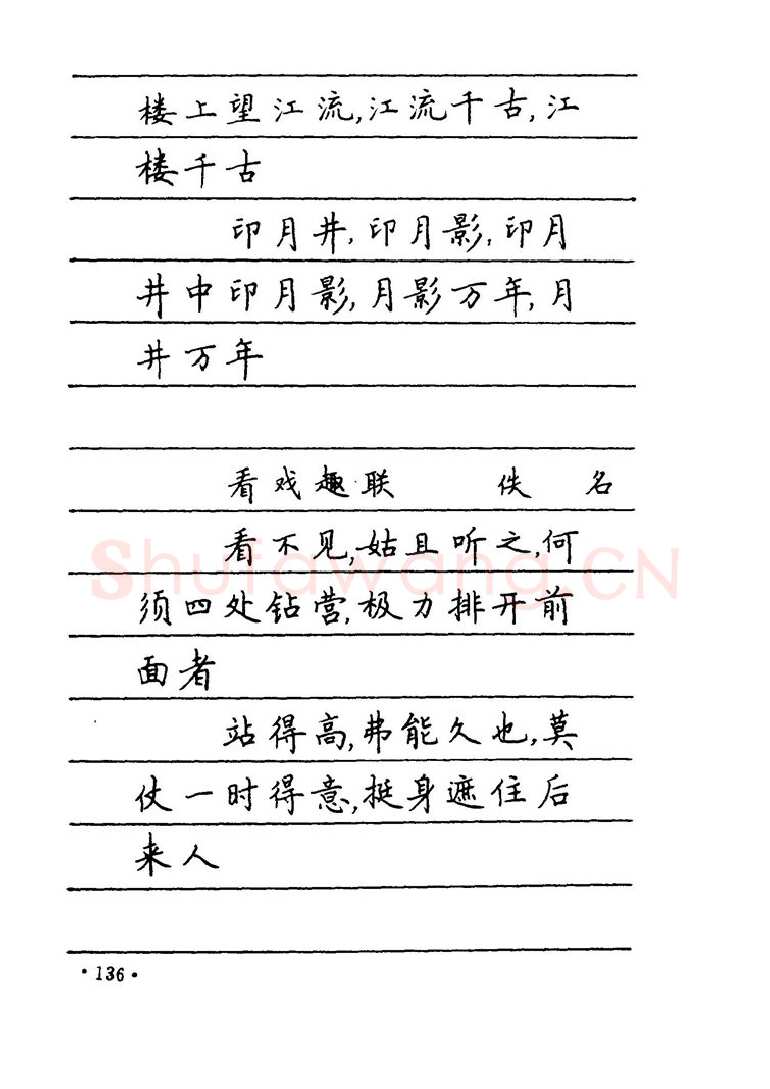 楼上望江流,江流千古,江
楼千古
印月井,印月影,印月
井中印月影,月影万年,月
井万年
看戏趣联 佚 名
看不见,姑且听之,何
须四处钻营,极力排开前
面者
站得高,弗能久也,莫
仗一时得意,挺身遮住后
来人
·136·
Shufawang.CN